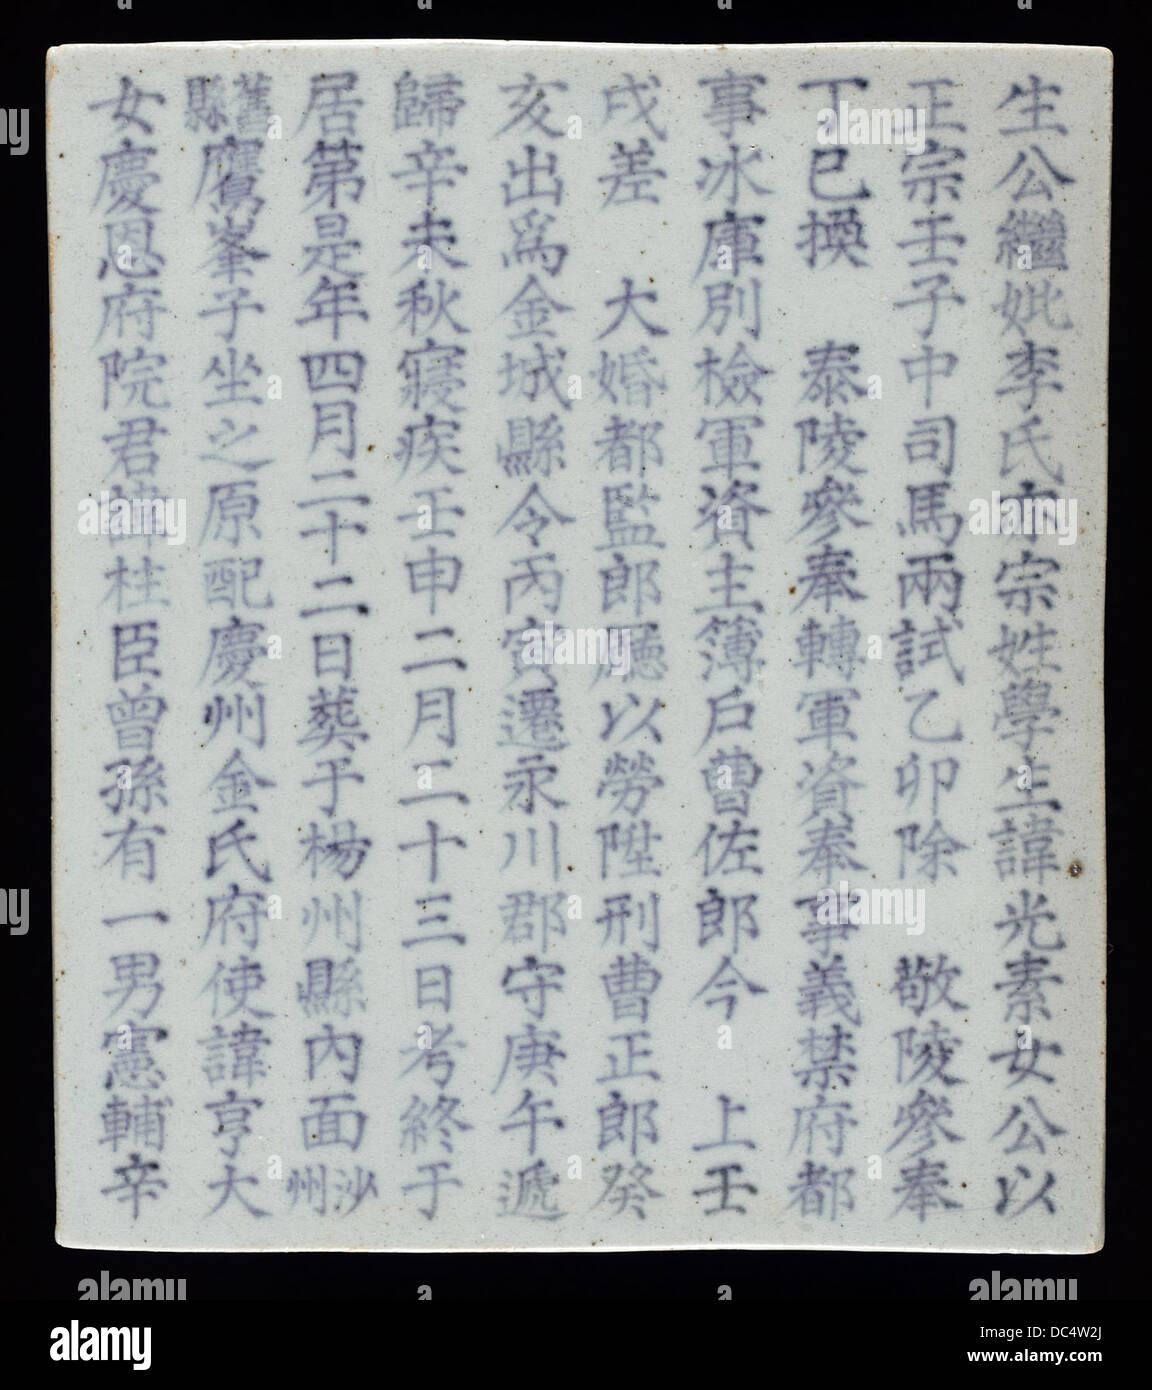 生公繼妣李氏亦宗姓學生諱光素女公以
正宗壬子中司馬兩試乙卯除 敬陵參奉
丁巳換 泰陵參奉轉軍資奉事義禁府都
事冰庫別檢軍資主簿戶曹佐郎今 上壬
戌差 大婚都監郎廳以勞陞刑曹正郎癸
亥出爲金城縣令丙寅遷永川郡守庚午遞
歸辛未秋寢疾壬申二月二十三日考終于
居第是年四月二十二日葬于楊州縣內面沙州
舊縣鷹峯子坐之原配慶州金氏府使諱亨大
女慶恩府院君諱柱臣曾孫有一男憲輔辛
alamy stock photo
DC4W2J
www.alamy.com